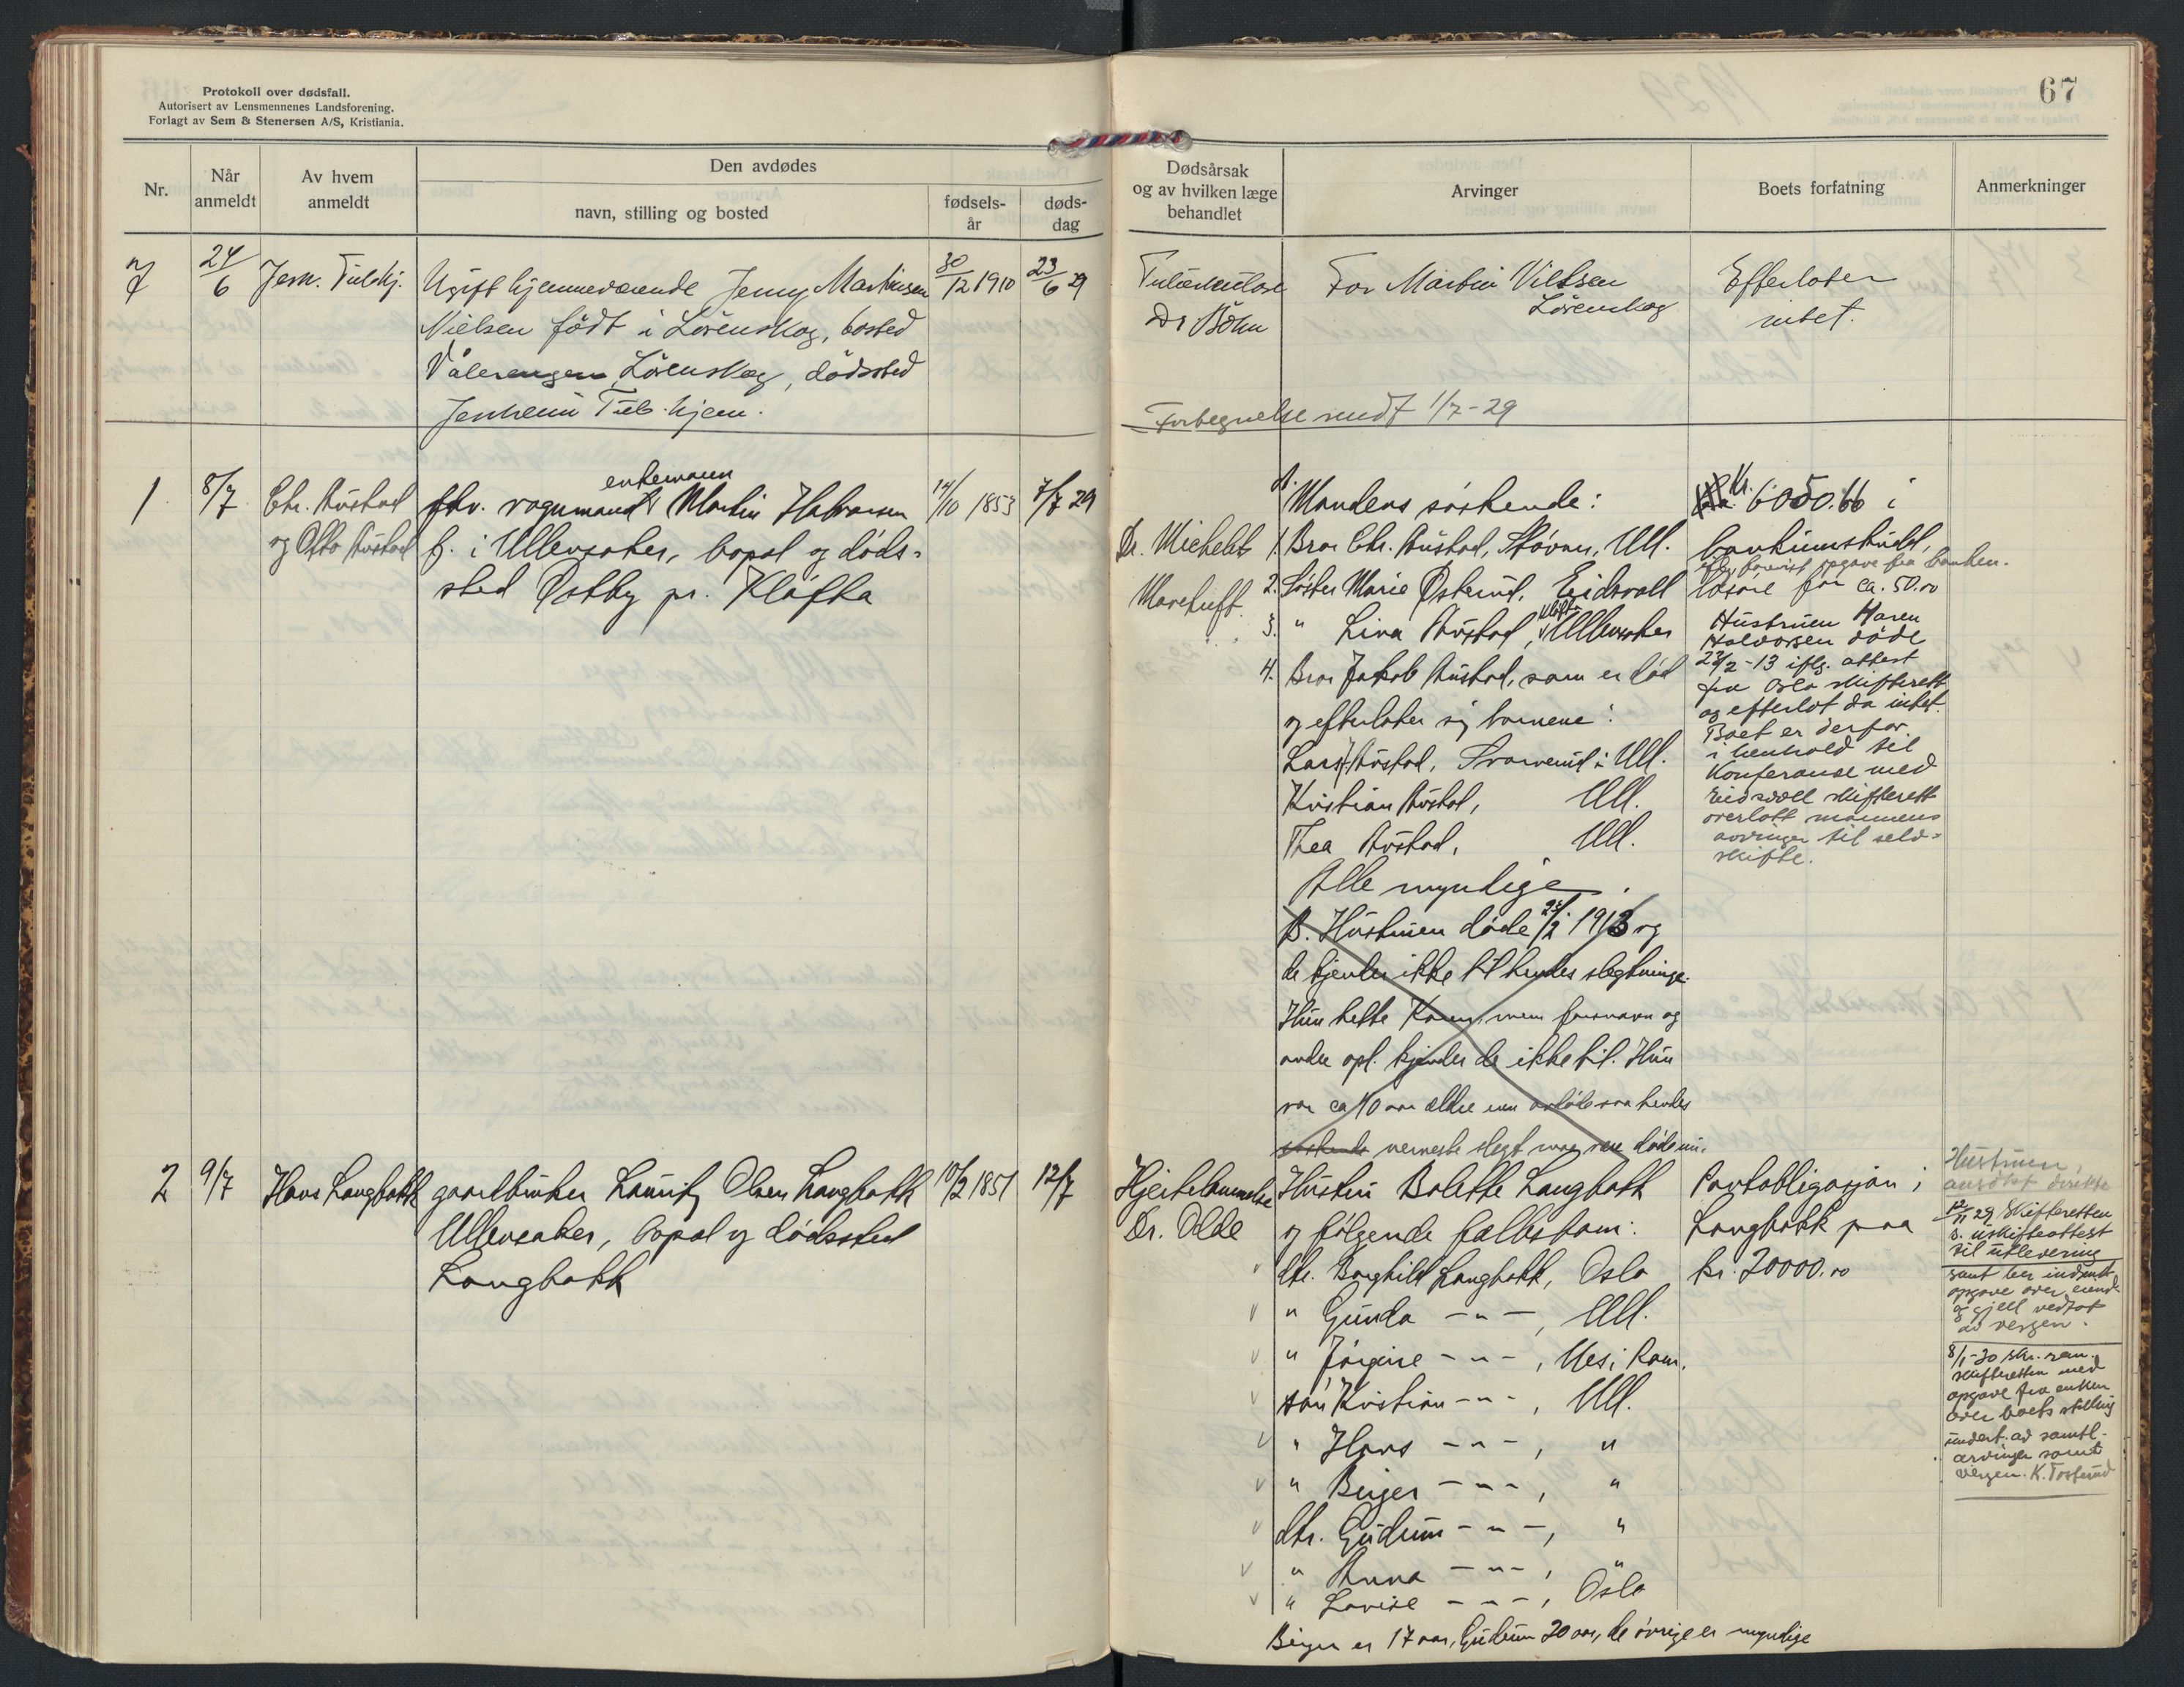 Protokoll over dødsfall.
Autorisert av Lensmennenes Landsforening.
Forlagt av Sem & Stenersen A/S, Kristiania.
Nr.
Når anmeldt
Av hvem anmeldt
Den avdødes
navn, stilling og bosted
fødsels-år
døds-dag
7
24/6
Jesh. Tubhj.
Ugift hjemmeværende Jenny Martinsen
Nielsen födt i Lörenskog, bosted
Vålerengen, Lörenskog, dödssted
Jesheim Tub. hjem.
30/12 1910
23/6 29
1
8/7
Chr. Austad
og Otto Austad
enkemann
fhv. vognmand Martin Halvorsen
f. i Ullensaker, bopal og döds-
sted Østby pr. Kløfta
14/10 1853
7/7 29
2
9/7
Hans Langbakk
gaardbruker Lauritz Olsen Langbakk
Ullensaker, bopal og dödssted
Langbakk
10/2 1851
12/7
67
Dødsårsak
og av hvilken læge
behandlet
Arvinger
Boets forfatning
Anmerkninger
Tuberkulose
Dr Böhn
Far Martin Nielsen
Lörenskog
Efterlater
intet.
Fortegnelse sendt 1/7-29
Dr. Michelet
A.
Mandens söskende:
1. Bror Chr. Austad, Skövner, Ull.
2. Söster Marie Østerud, Eidsvoll
3. " Lina Austad, Kløfta Ullensaker
4. Bror Jakob Austad, som er död
og efterlater sig barnene:
Lars Austad, i Ull.
Kristian Austad, Ull.
Thea Austad, Ull.
Alle myndige.
B. Hustruen døde 23/2 1913 og
de kjender ikke til hendes slegtninge.
Hun hette Karen, men farsnavn og
andre opl. kjender de ikke til. Hun
var ca 10 aar ældre enn avdöde saa hendes
söskende nærmeste slegt maa være döde nu.
Kr. 6050.66 i
bankinnskudd,
efter forevist opgave fra banken.
lösöre for ca. 50.00
Hustruen Karen
Halvorsen döde
23/2-13 iflg. attest
fra Oslo skifterett
og efterlot da intet.
Boet er derfor
i henhold til
Konferanse med
Eidsvoll skifterett
overlatt mannens
arvinger til selv-
skifte.
Hjertelammelse
Dr. Odde
Hustru Bolette Langbakk
og følgende fællesbarn:
dtr. Borghild Langbakk, Oslo
" Gunda - " - , Ull.
" Jörgine - " - , Nes i Rom.
sön Kristian - " - , Ull.
" Hans - " - , "
" Birger - " - , "
dtr. Gudrun - " - , "
" Anna - " - , "
" Lovise - " - , Oslo
Birger er 17 aar, Gudrun 20 aar, de övrige er myndige
Pantobligasjon i
Langbakk paa
kr. 20000.00
Hustruen,
ansökt direkte
12/11 29 Skifteretten
s. uskifteattest
til utlevering
samt ber indsendt
opgave over eiend.
og gjeld vedtat
av vergen.
8/1-30 skr. sen.
skifteretten med
opgave fra enken
over boets stilling
undert. av samtl.
arvinger samt
vergen. K.